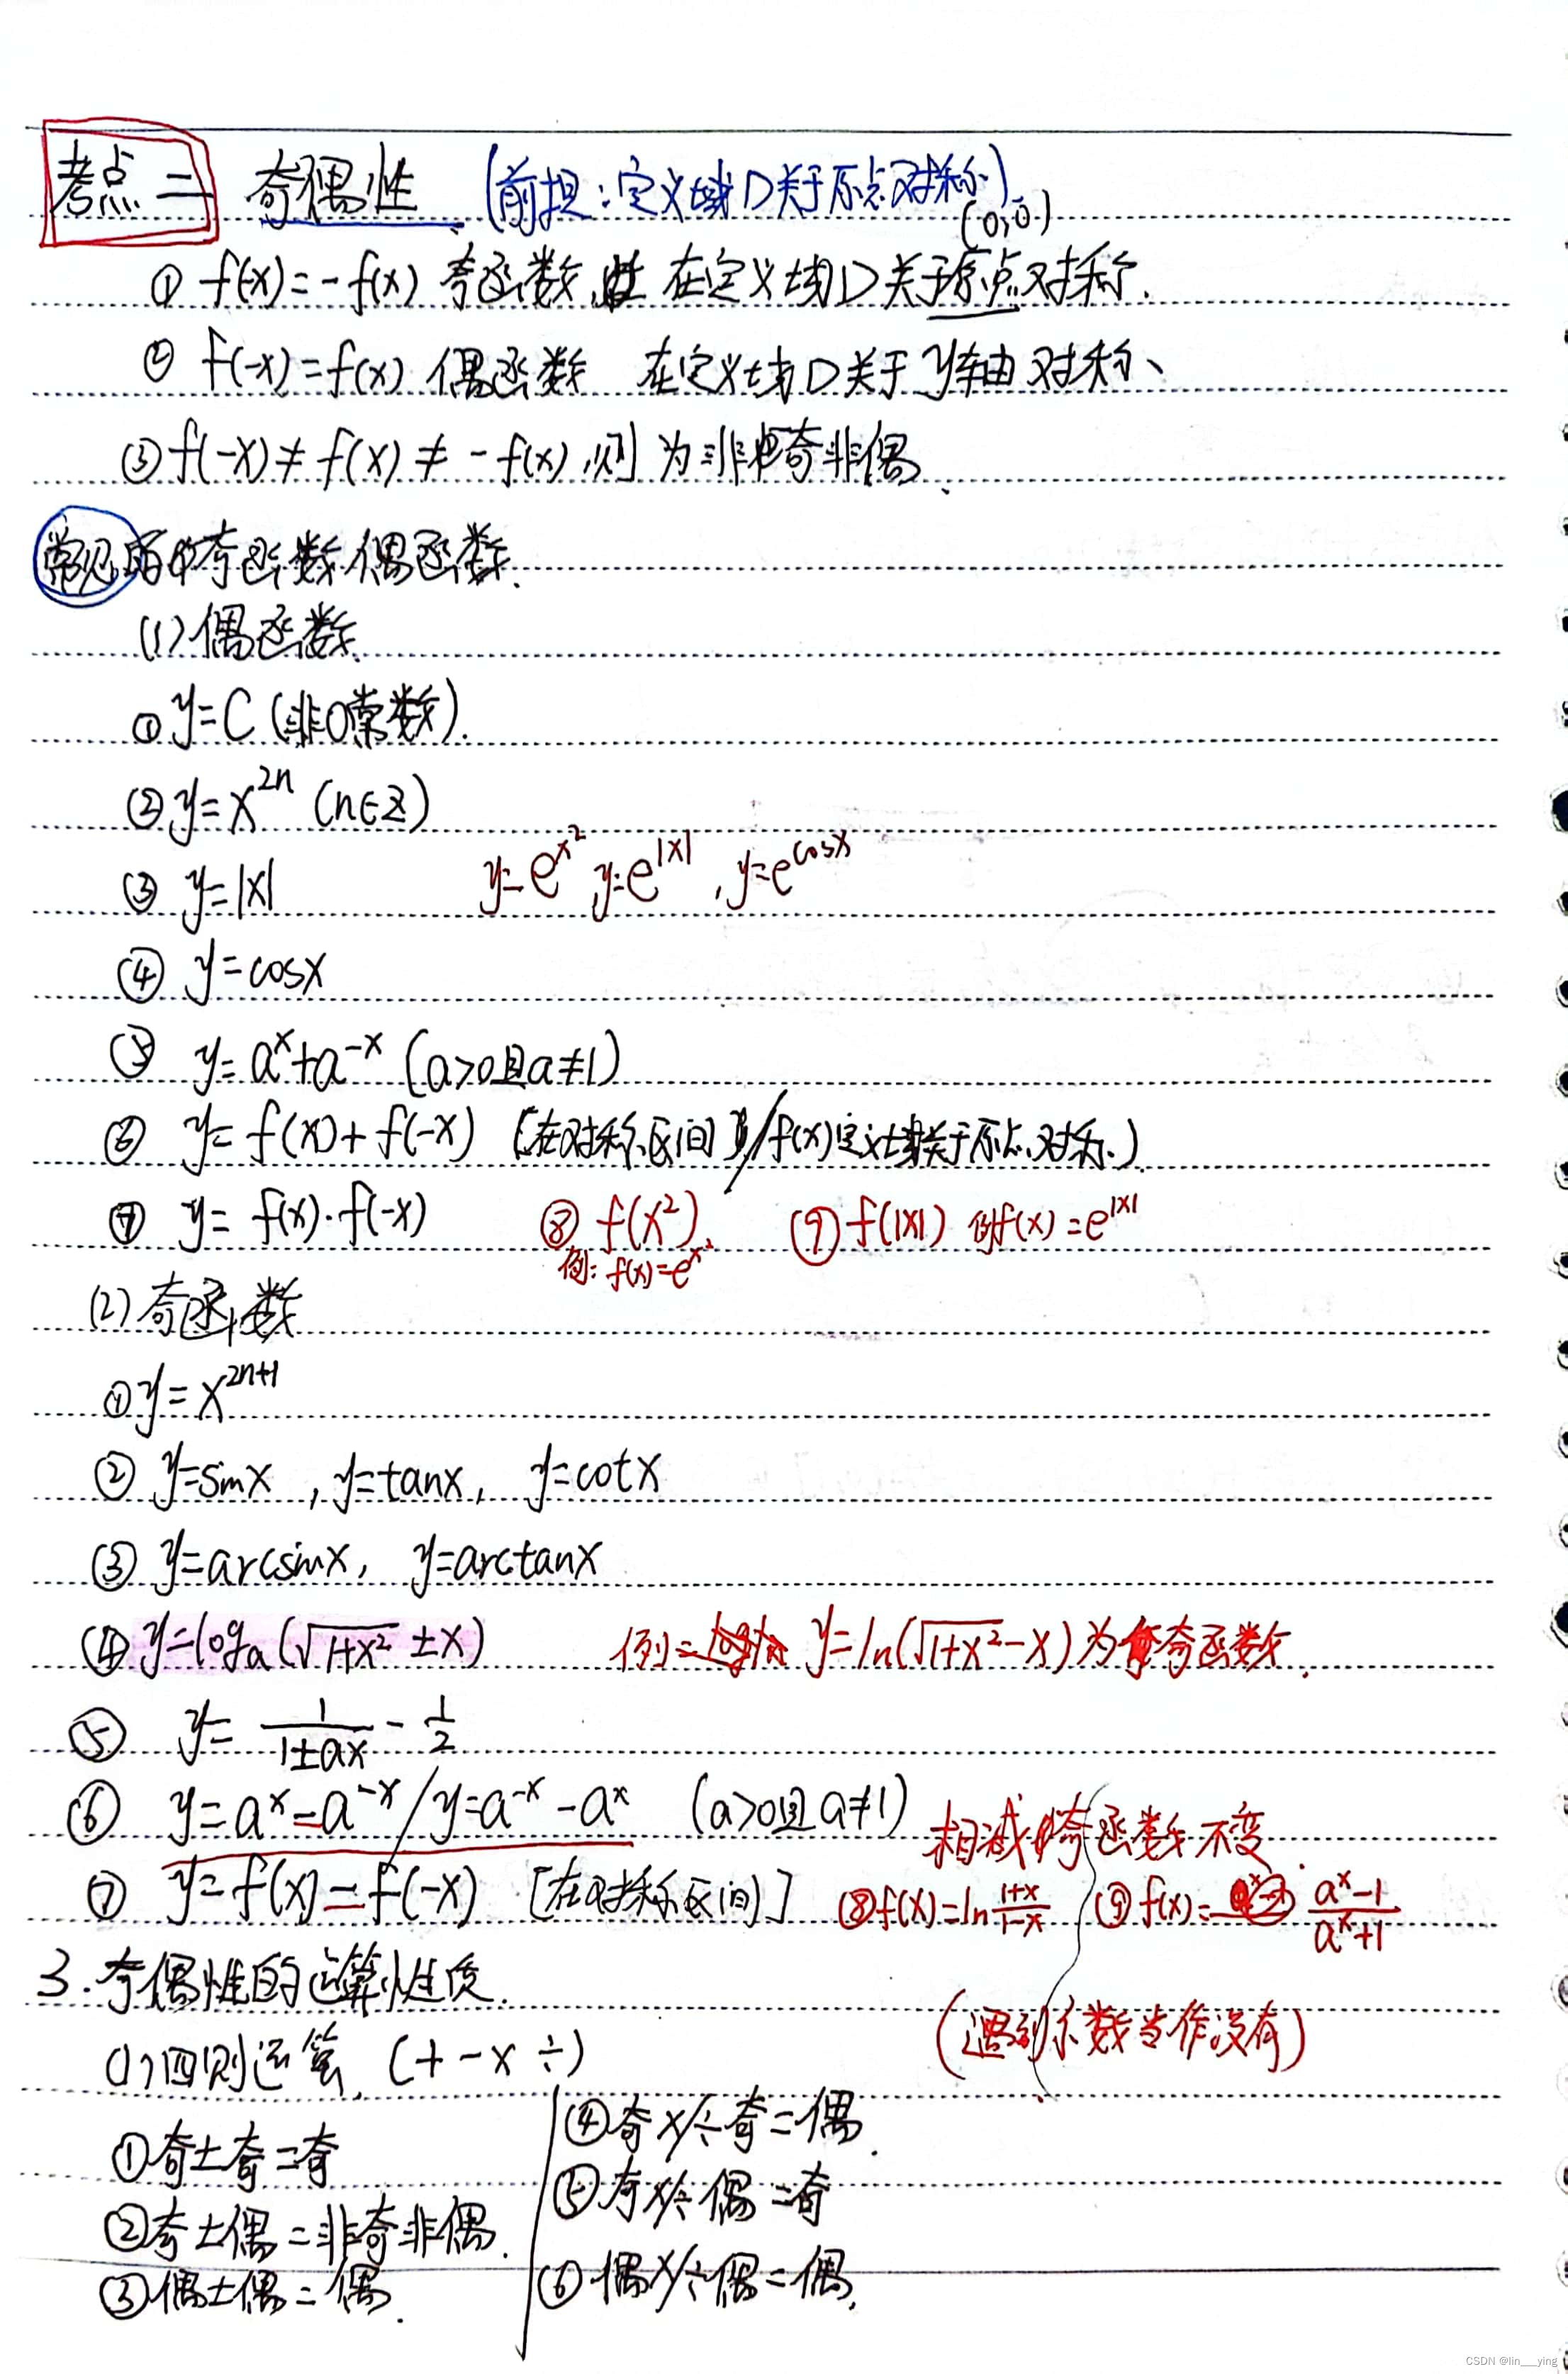 考点二 奇偶性 (前提:定义域D关于原点对称)
(0,0)
① f(-x)=-f(x) 奇函数, 在定义域D关于原点对称.
② f(-x)=f(x) 偶函数 在定义域D关于y轴对称、
③ f(-x)≠f(x)≠-f(x),则为非奇非偶.
常见的奇函数偶函数.
(1)偶函数.
① y=C(非0常数).
② y=x^{2n} (n∈Z)
③ y=|x| y=e^{x^2} y=e^{|x|}, y=e^{cosx}
④ y=cosx
⑤ y=a^x+a^{-x} (a>0且a≠1)
⑥ y=f(x)+f(-x) [在对称区间]/f(x)定义域关于原点对称.)
⑦ y=f(x)·f(-x) ⑧ f(x^2) ⑨ f(|x|) 例f(x)=e^{|x|}
例: f(x)=e^{x^2}
(2)奇函数
① y=x^{2n+1}
② y=sinx, y=tanx, y=cotx
③ y=arcsinx, y=arctanx
④ y=log_a(√(1+x^2) ±x) 例= y=ln(√(1+x^2)-x)为奇函数.
⑤ y=1/(1±ax) - 1/2
⑥ y=a^x-a^{-x}/y=a^{-x}-a^x (a>0且a≠1) 相减 奇函数不变.
⑦ y=f(x)-f(-x) [在对称区间] ⑧ f(x)=ln (1+x)/(1-x) ⑨ f(x)= (a^x-1)/(a^x+1)
3.奇偶性的运算性质.
(1)四则运算. (+-×÷) (遇到系数当作没有)
①奇±奇=奇
②奇±偶=非奇非偶.
③偶±偶=偶.
④奇×/÷奇=偶.
⑤奇×/÷偶=奇
⑥偶×/÷偶=偶.
CSDN @lin___ying